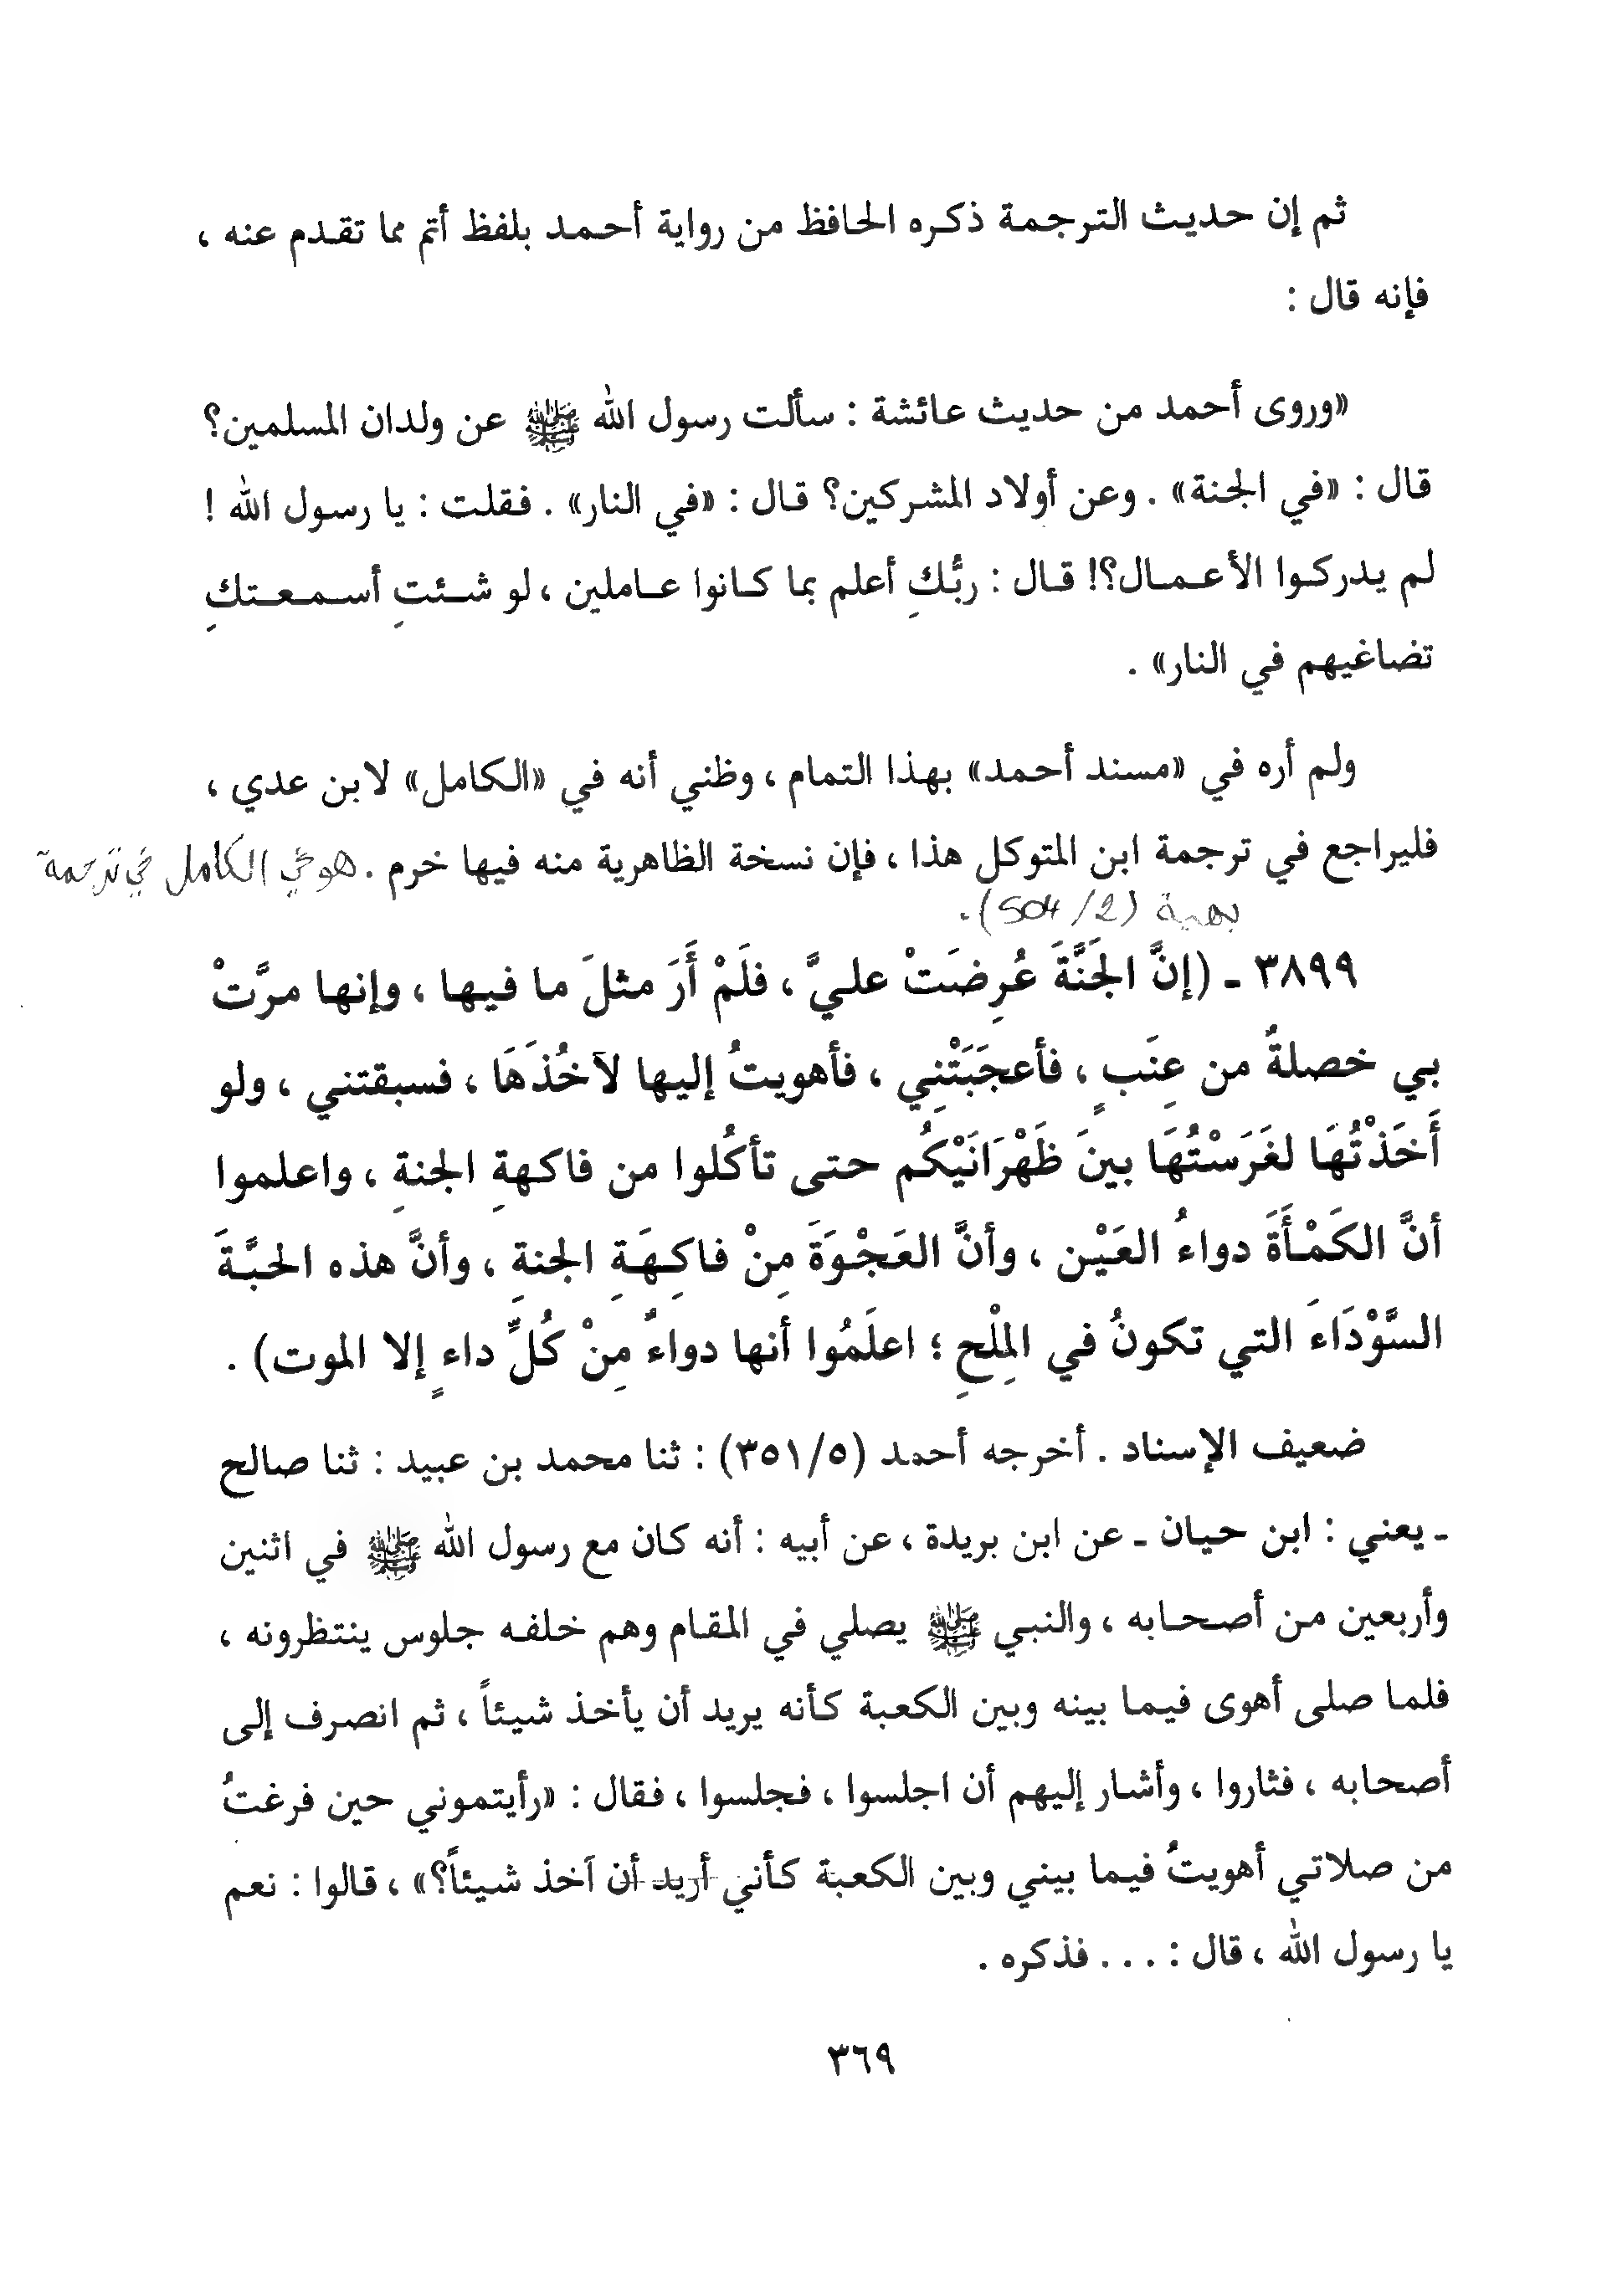 ثم إن حديث الترجمة ذكره الحافظ من رواية أحمد بلفظ أتم مما تقدم عنه ،
فإنه قال :
«وروى أحمد من حديث عائشة : سألت رسول الله ﷺ عن ولدان المسلمين؟
قال : «في الجنة» . وعن أولاد المشركين؟ قال : «في النار» . فقلت : يا رسول الله !
لم يدركوا الأعمال؟! قال : ربُّكِ أعلم بما كانوا عاملين ، لو شئتِ أسمعتكِ
تضاغيهم في النار» .
ولم أره في «مسند أحمد» بهذا التمام ، وظني أنه في «الكامل» لابن عدي ،
فليراجع في ترجمة ابن المتوكل هذا ، فإن نسخة الظاهرية منه فيها خرم . هو في الكامل في ترجمة
بهية (2/504).
٣٨٩٩ ـ (إنَّ الجَنَّةَ عُرِضَتْ عليَّ ، فلَمْ أَرَ مثلَ ما فيها ، وإنها مرَّتْ
بي خصلةٌ من عِنَبٍ ، فأعجَبَتْنِي ، فأهويتُ إليها لآخُذَهَا ، فسبقتني ، ولو
أَخَذْتُهَا لغَرَسْتُهَا بينَ ظَهْرَانَيْكُم حتى تأكُلوا من فاكهةِ الجنةِ ، واعلموا
أنَّ الكَمْأَةَ دواءُ العَيْن ، وأنَّ العَجْوَةَ مِنْ فاكِهَةِ الجنةِ ، وأنَّ هذه الحبَّةَ
السَّوْدَاءَ التي تكونُ في المِلْحِ ؛ اعلَمُوا أنها دواءٌ مِنْ كُلِّ داءٍ إلا الموت) .
ضعيف الإسناد . أخرجه أحمد (٣٥١/٥) : ثنا محمد بن عبيد : ثنا صالح
ـ يعني : ابن حيان ـ عن ابن بريدة ، عن أبيه : أنه كان مع رسول الله ﷺ في اثنين
وأربعين من أصحابه ، والنبي ﷺ يصلي في المقام وهم خلفه جلوس ينتظرونه ،
فلما صلى أهوى فيما بينه وبين الكعبة كأنه يريد أن يأخذ شيئاً ، ثم انصرف إلى
أصحابه ، فثاروا ، وأشار إليهم أن اجلسوا ، فجلسوا ، فقال : «رأيتموني حين فرغتُ
من صلاتي أهويتُ فيما بيني وبين الكعبة كأني أريد أن آخذ شيئاً؟» ، قالوا : نعم
يا رسول الله ، قال : . . . فذكره .
٣٦٩